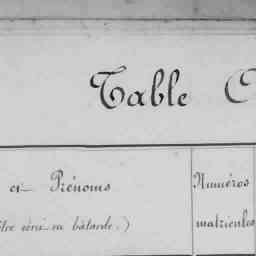 Table
et Prénoms
être écrit en bâtarde.)
Numéros
matricules